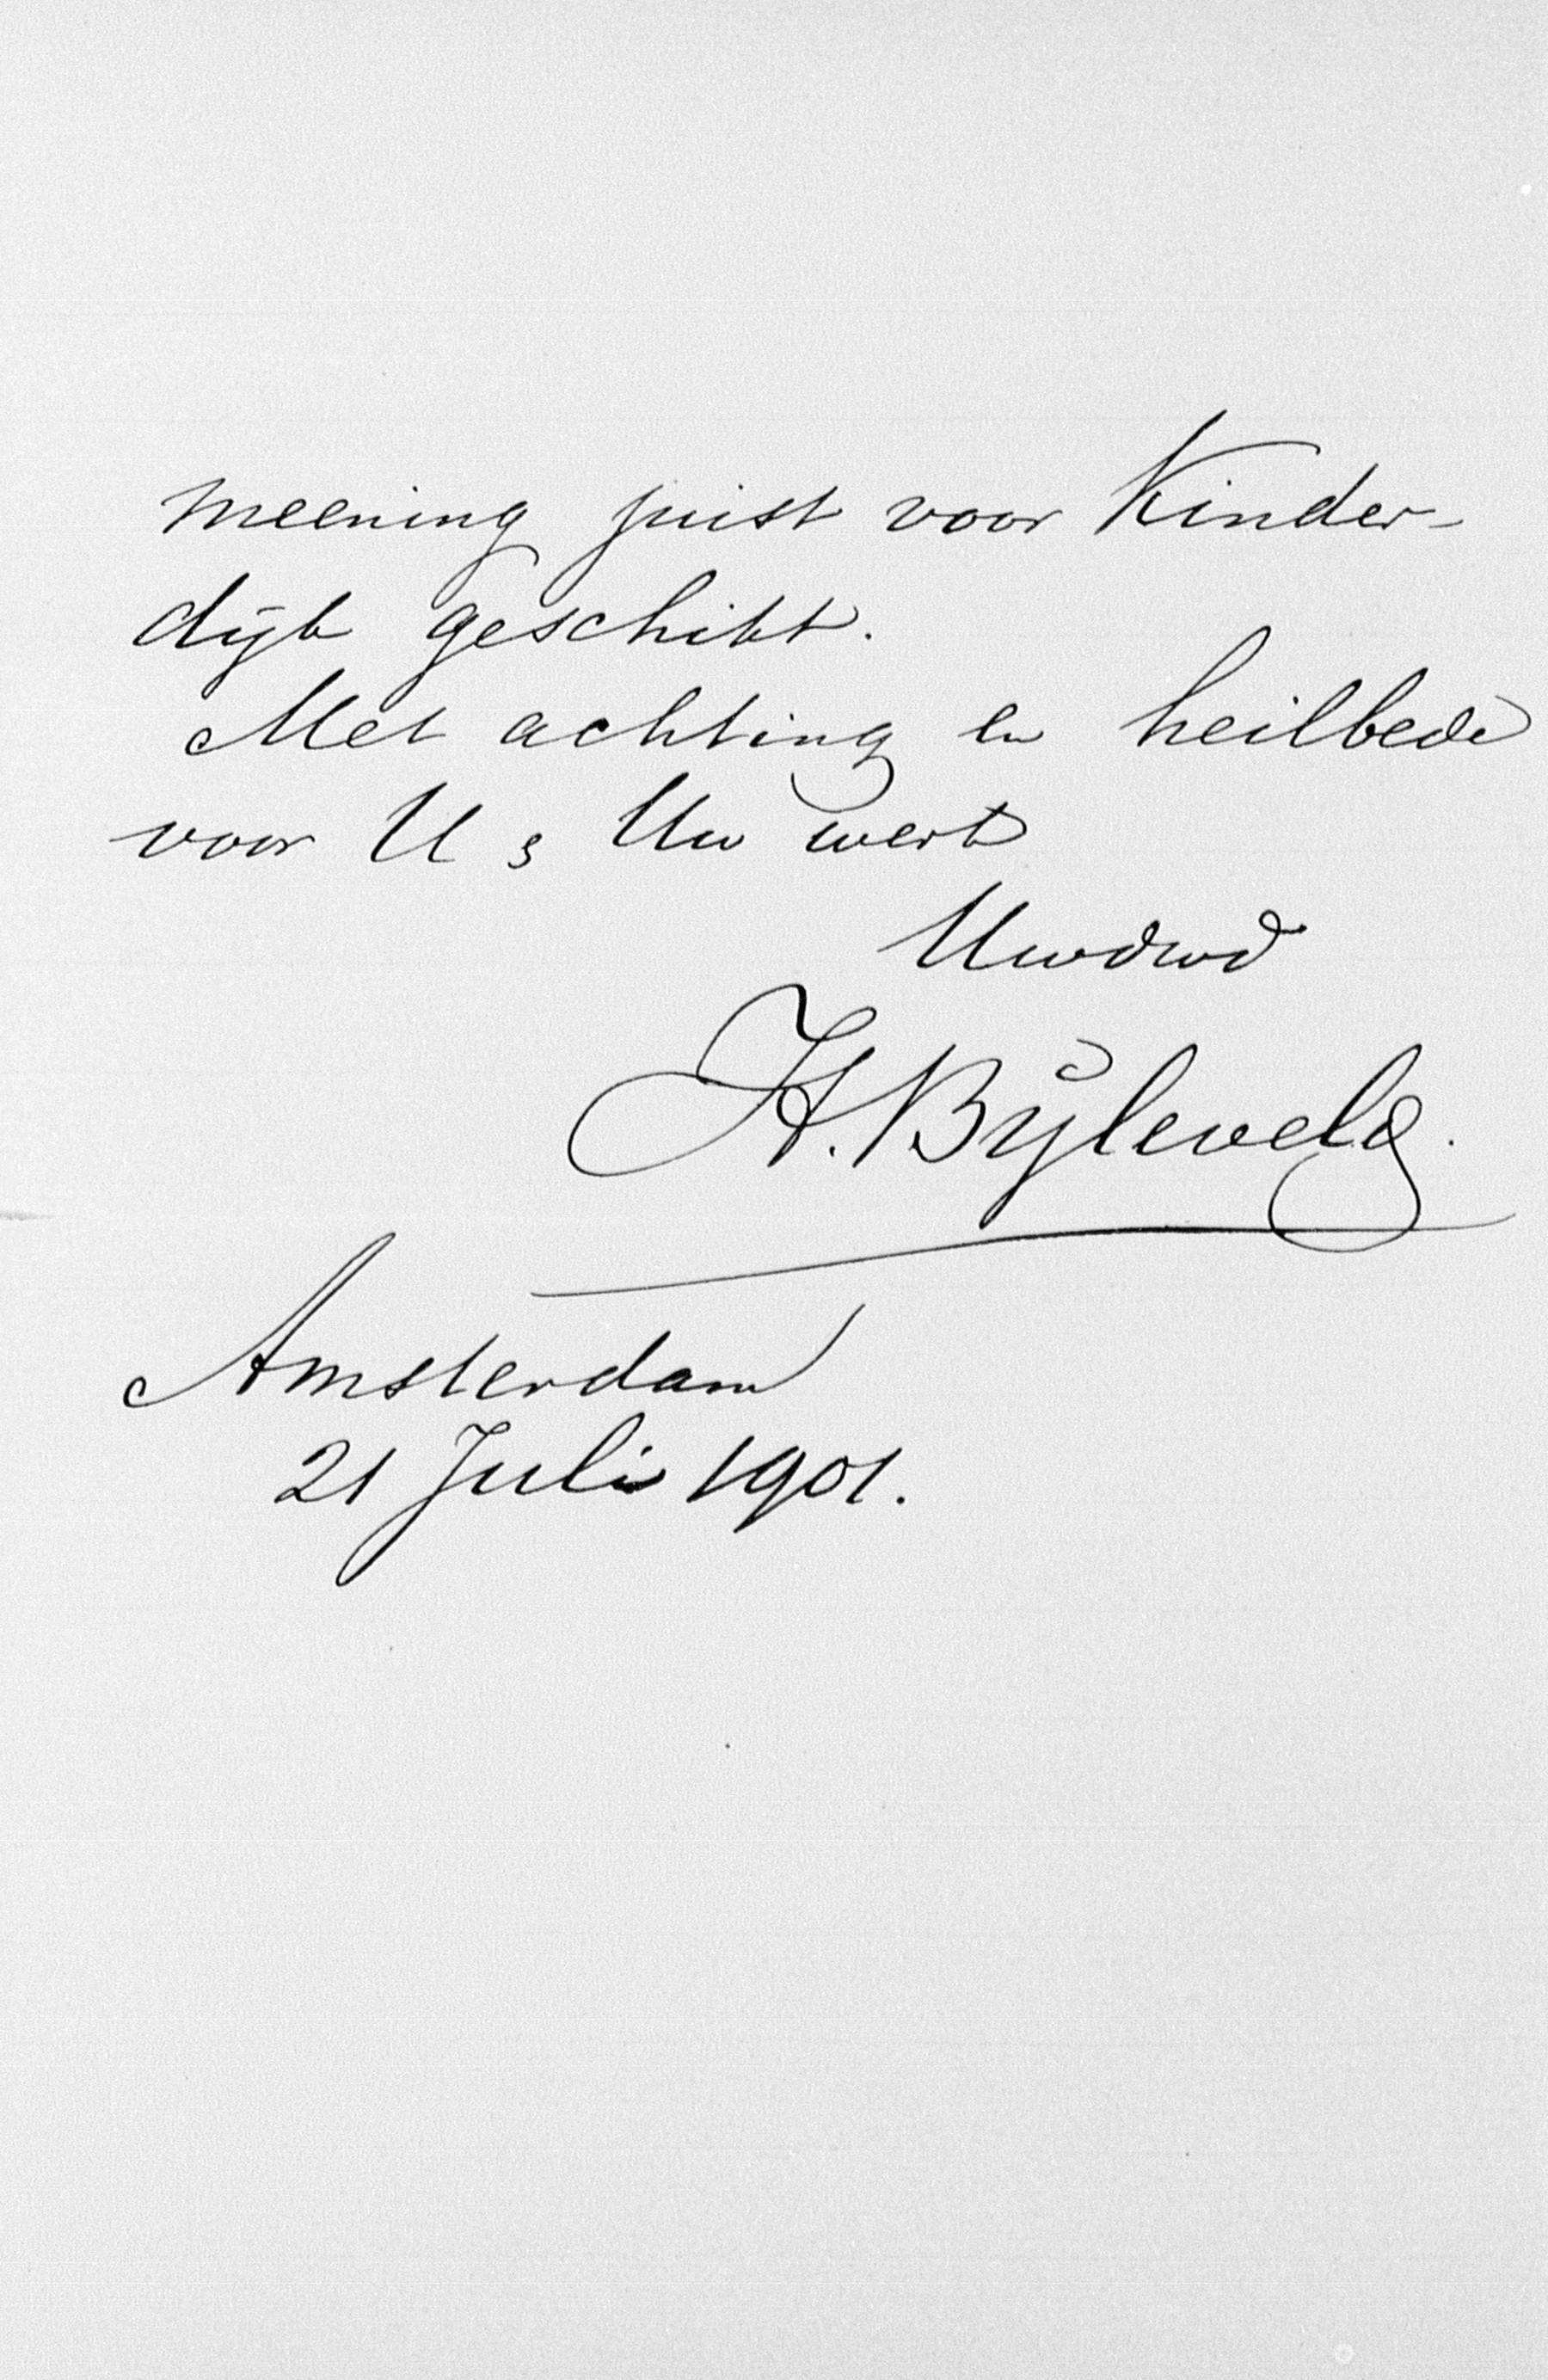 meening juist voor Kinder-
dijk geschikt.
Met achting en heilbede
voor U & Uw werk
Uwdwd
H. Bijleveld.
Amsterdam
21 Juli 1901.